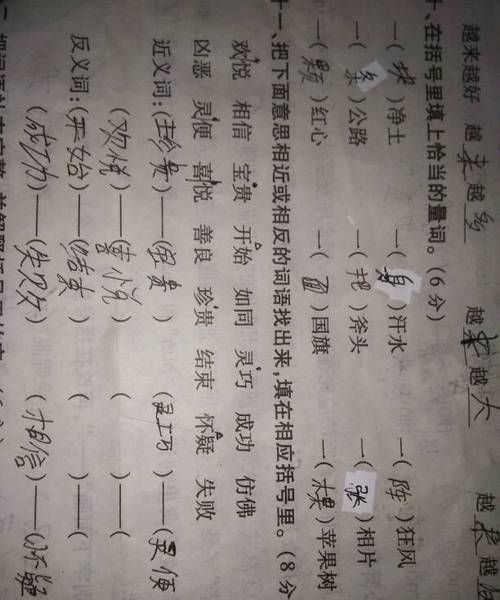 越来越好 越来越多 越来越大 越长越
十、在括号里填上恰当的量词。(6分)
一(块)净土 一(身)汗水 一(阵)狂风
一(条)公路 一(把)斧头 一(张)相片
一(颗)红心 一(面)国旗 一(棵)苹果树
十一、把下面意思相近或相反的词语找出来,填在相应括号里。(8分
欢悦 相信 宝贵 开始 如同 灵巧 成功 仿佛
凶恶 灵便 喜悦 善良 珍贵 结束 怀疑 失败
近义词:(珍贵)——(宝贵) (灵巧)——(灵便
(欢悦)——(喜悦) ( )——(
反义词:(开始)——(结束) ( )——(
(成功)——(失败) (相信)——(怀疑